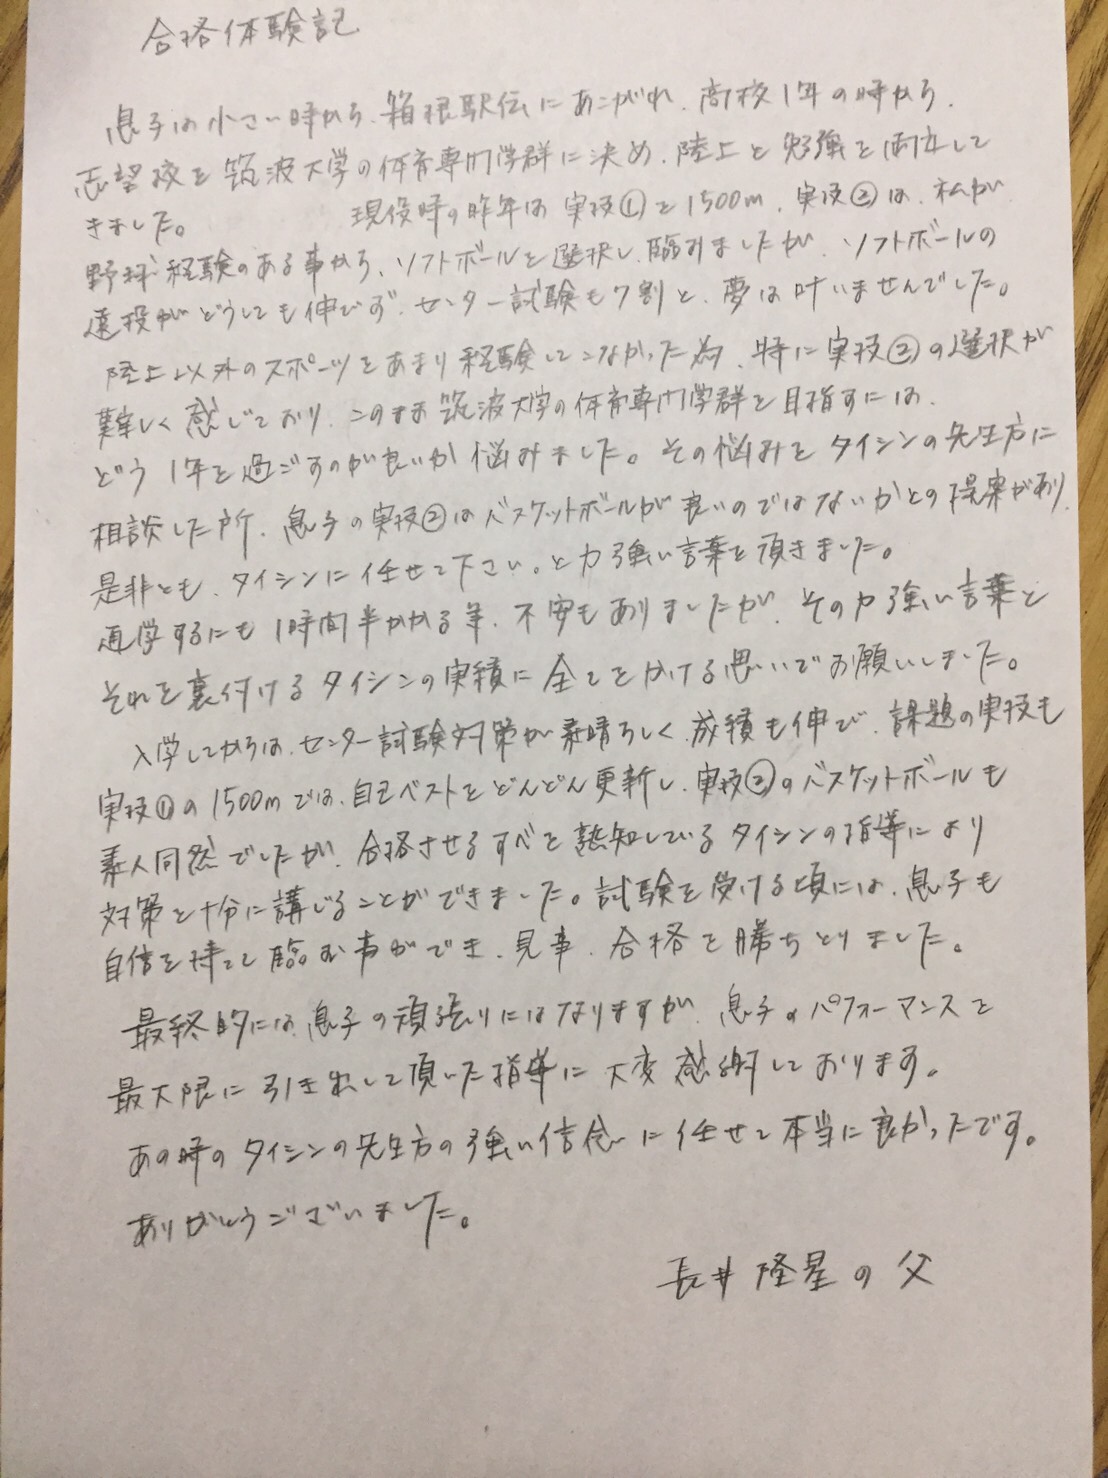 合格体験記
息子は小さい時から、箱根駅伝にあこがれ、高校1年の時から、
志望校を筑波大学の体育専門学群に決め、陸上と勉強を両立して
きました。 現役時の昨年は実技①を1500m、実技②は、私が
野球経験のある事から、ソフトボールを選択し、臨みましたが、ソフトボールの
遠投がどうしても伸びず、センター試験も7割と、夢は叶いませんでした。
陸上以外のスポーツをあまり経験してこなかった為、特に実技②の選択が
難しく感じており、このまま筑波大学の体育専門学群を目指すには、
どう1年を過ごすのが良いか悩みました。その悩みをタイシンの先生方に
相談した所、息子の実技②はバスケットボールが良いのではないかとの提案があり、
是非とも、タイシンに任せて下さい。と力強い言葉を頂きました。
通学するにも1時間半かかる等、不安もありましたが、その力強い言葉と
それを裏付けるタイシンの実績に全てをかける思いでお願いしました。
入学してからは、センター試験対策が素晴らしく、成績も伸び、課題の実技も
実技①の1500mでは、自己ベストをどんどん更新し、実技②のバスケットボールも
素人同然でしたが、合格させるすべを熟知しているタイシンの指導により
対策を十分に講じることができました。試験を受ける頃には、息子も
自信を持って臨む事ができ、見事、合格を勝ちとりました。
最終的には、息子の頑張りにはなりますが、息子のパフォーマンスを
最大限に引き出して頂いた指導に大変感謝しております。
あの時のタイシンの先生方の強い信念に任せて本当に良かったです。
ありがとうございました。
長井 隆星の父